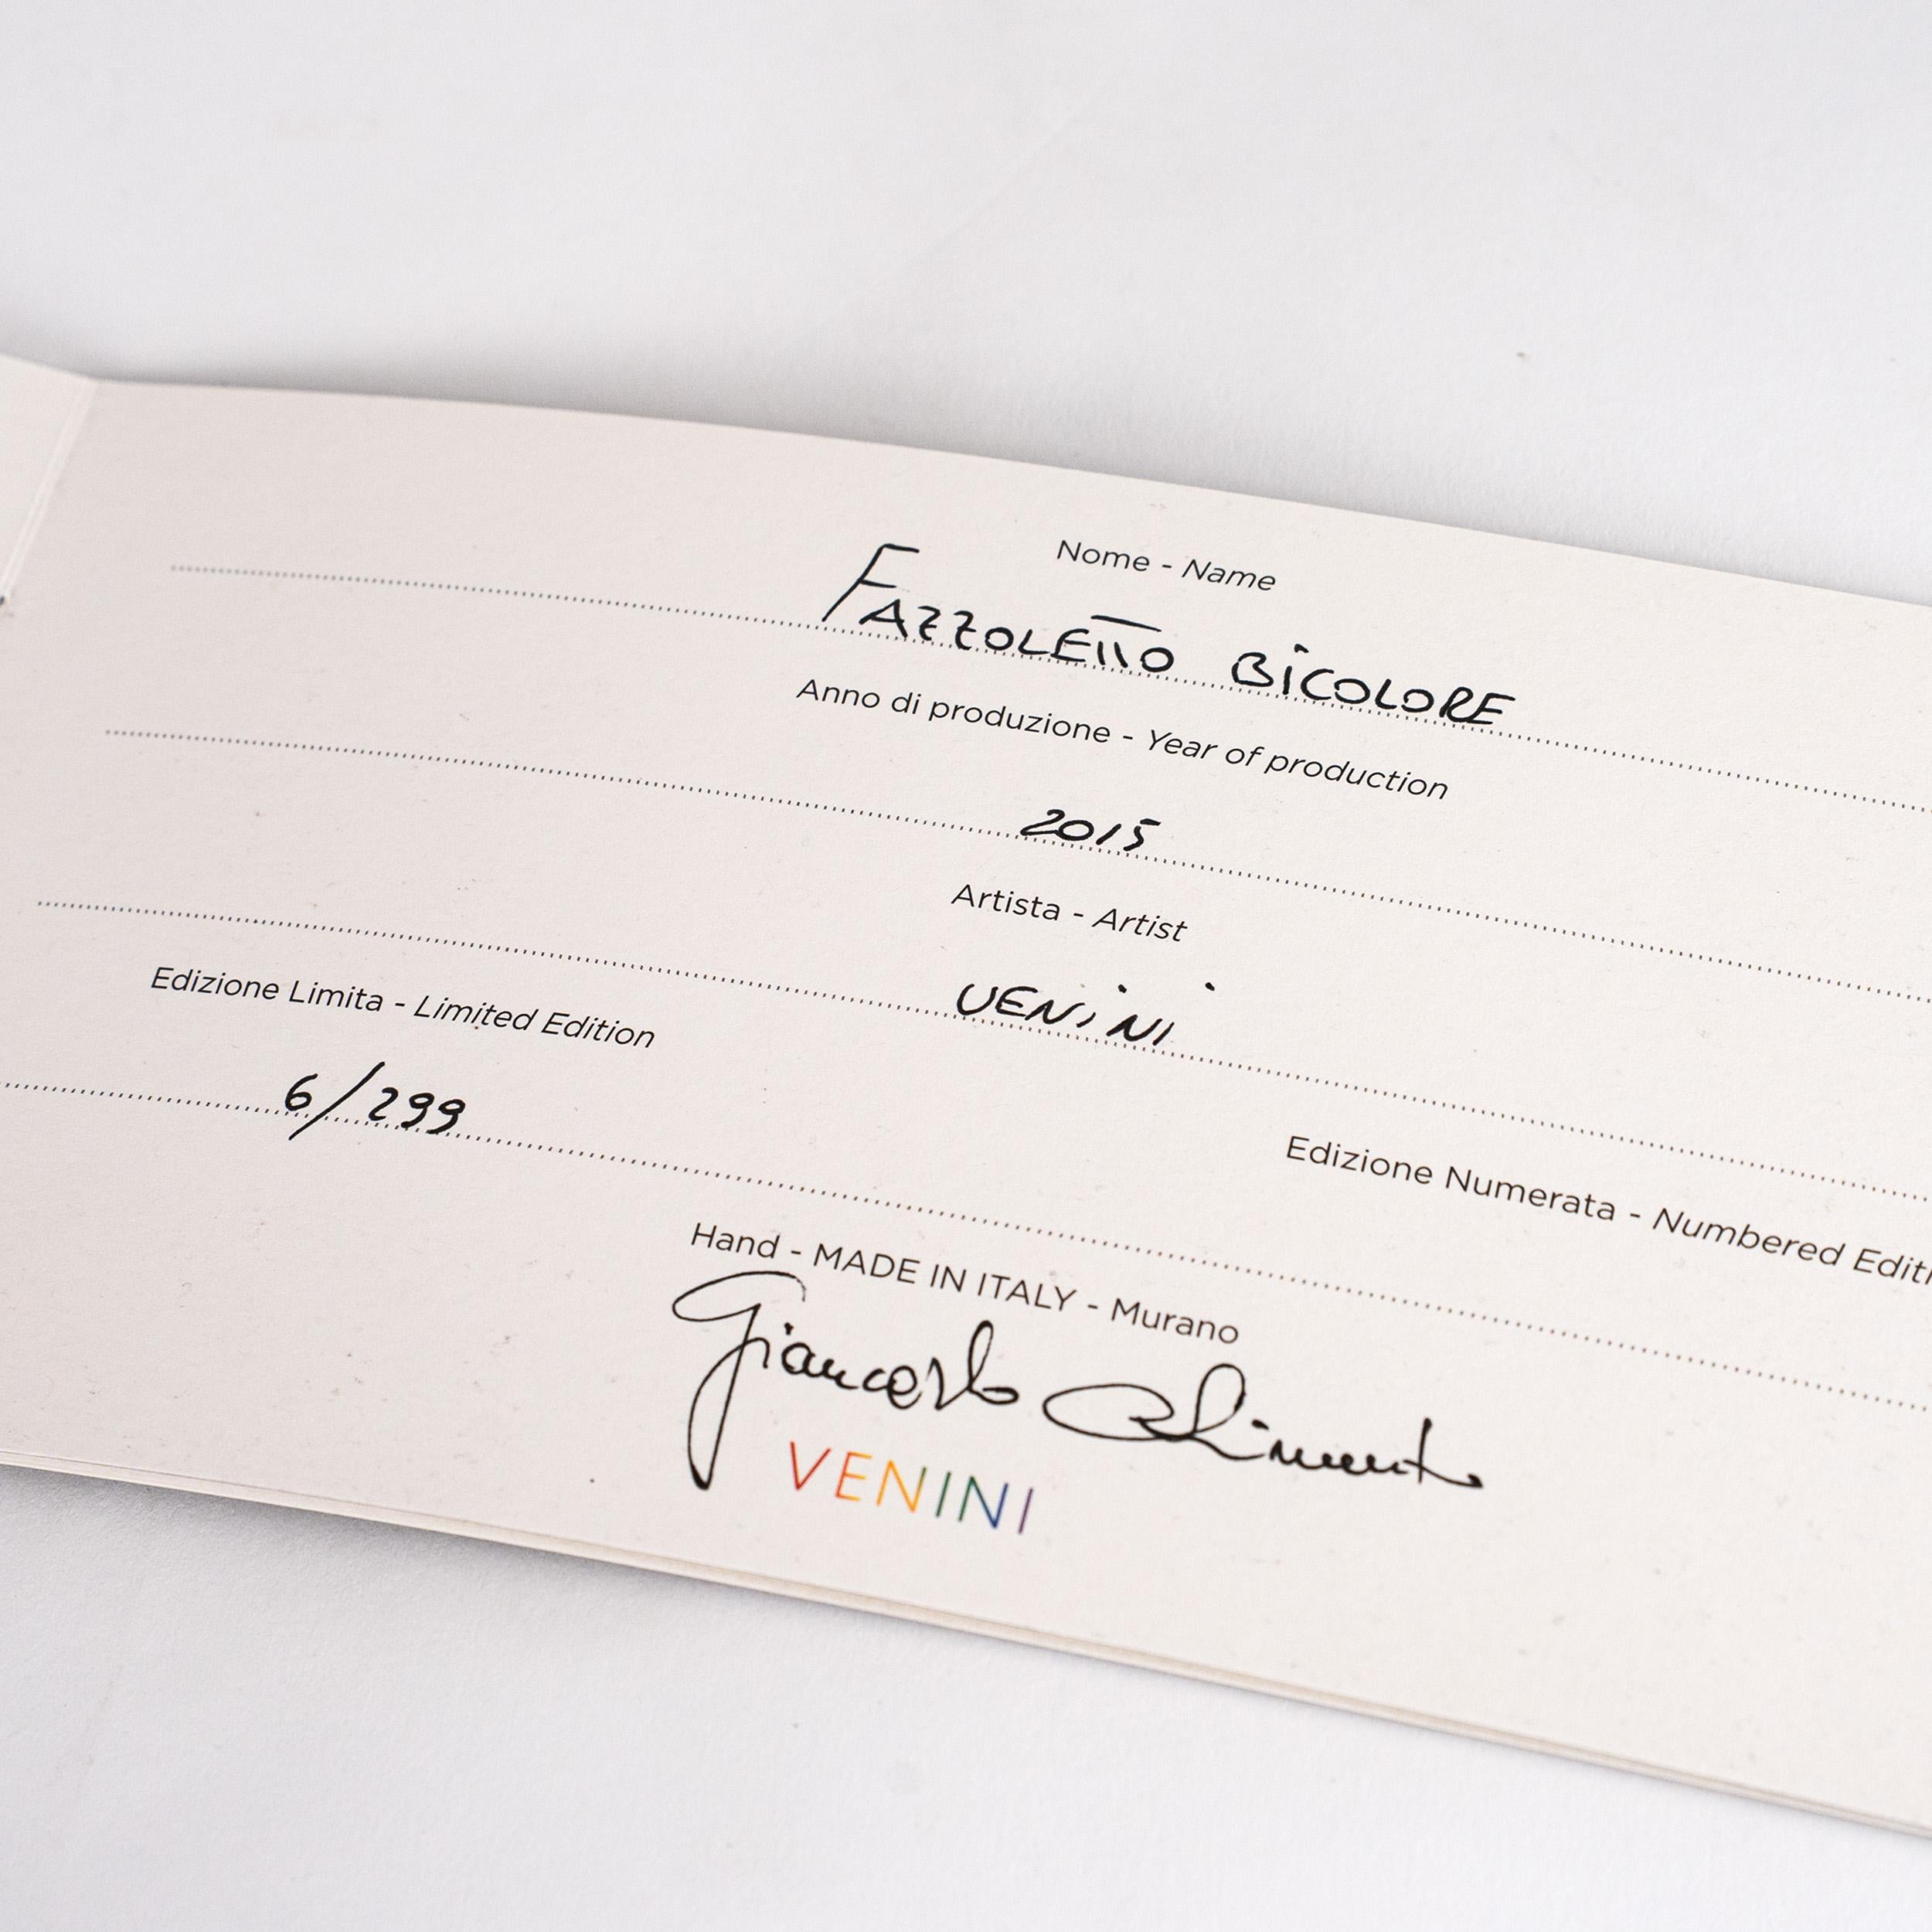 Nome - Name
FAZZOLETTO BICOLORE
Anno di produzione - Year of production
2015
Artista - Artist
VENINI
Edizione Limita - Limited Edition
6/299
Edizione Numerata - Numbered Editi
Hand - MADE IN ITALY - Murano
Giancarlo
VENINI